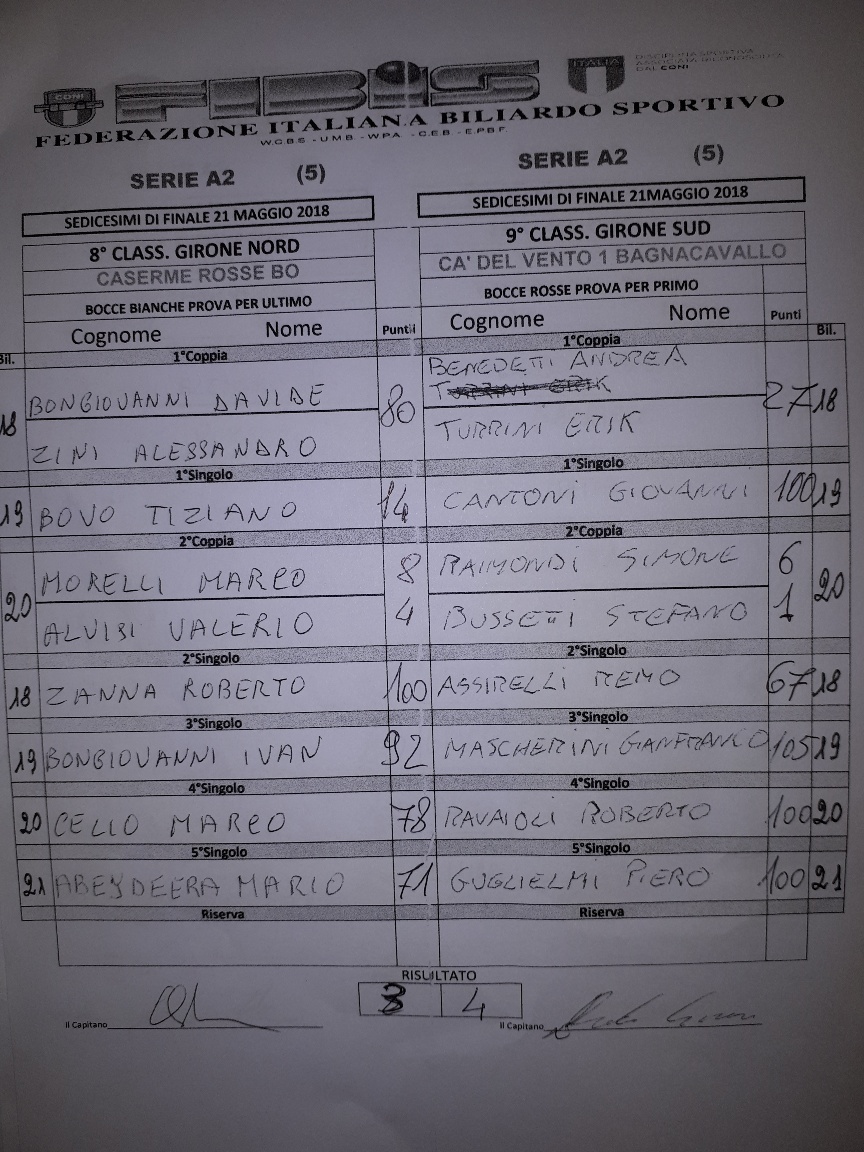 CONI
FIBIS
ITALIA
DISCIPLINA SPORTIVA
ASSOCIATA RICONOSCIUTA
DAL CONI
FEDERAZIONE ITALIANA BILIARDO SPORTIVO
W.C.B.S. - U.M.B - W.P.A. - C.E.B. - E.P.B.F.
SERIE A2 (5)
SEDICESIMI DI FINALE 21 MAGGIO 2018
8° CLASS. GIRONE NORD
CASERME ROSSE BO
BOCCE BIANCHE PROVA PER ULTIMO
Cognome Nome Punti
Bil. 1°Coppia
18 BONGIOVANNI DAVIDE 80
ZINI ALESSANDRO
1°Singolo
19 BOVO TIZIANO 14
2°Coppia
20 MORELLI MARCO 8
ALVISI VALERIO 4
2°Singolo
18 ZANNA ROBERTO 100
3°Singolo
19 BONGIOVANNI IVAN 92
4°Singolo
20 CELLO MARCO 78
5°Singolo
21 ABEYDEERA MARIO 71
Riserva
SERIE A2 (5)
SEDICESIMI DI FINALE 21MAGGIO 2018
9° CLASS. GIRONE SUD
CA' DEL VENTO 1 BAGNACAVALLO
BOCCE ROSSE PROVA PER PRIMO
Cognome Nome Punti
1°Coppia Bil.
BENEDETTI ANDREA
TURRINI ERIK
27 18
TURRINI ERIK
1°Singolo
CANTONI GIOVANNI 100 19
2°Coppia
RAIMONDI SIMONE 6 20
BUSSETTI STEFANO 1
2°Singolo
ASSIRELLI REMO 67 18
3°Singolo
MASCHERINI GIANFRANCO 105 19
4°Singolo
RAVAIOLI ROBERTO 100 20
5°Singolo
GUGLIELMI PIERO 100 21
Riserva
RISULTATO
3 4
Il Capitano
Il Capitano